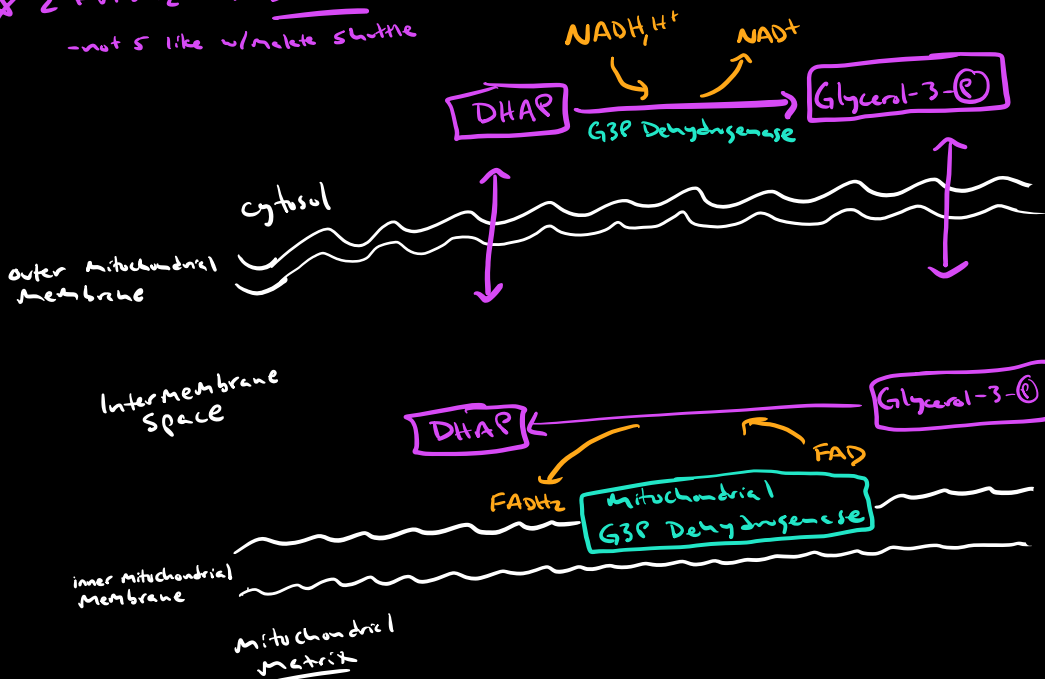 -not 5 like w/malate shuttle
NADH,H+
NAD+
DHAP
Glycerol-3-P
G3P Dehydrogenase
cytosol
outer mitochondrial
membrane
Intermembrane
space
DHAP
Glycerol-3-P
FAD
FADH2
Mitochondrial
G3P Dehydrogenase
inner mitochondrial
membrane
Mitochondrial
Matrix